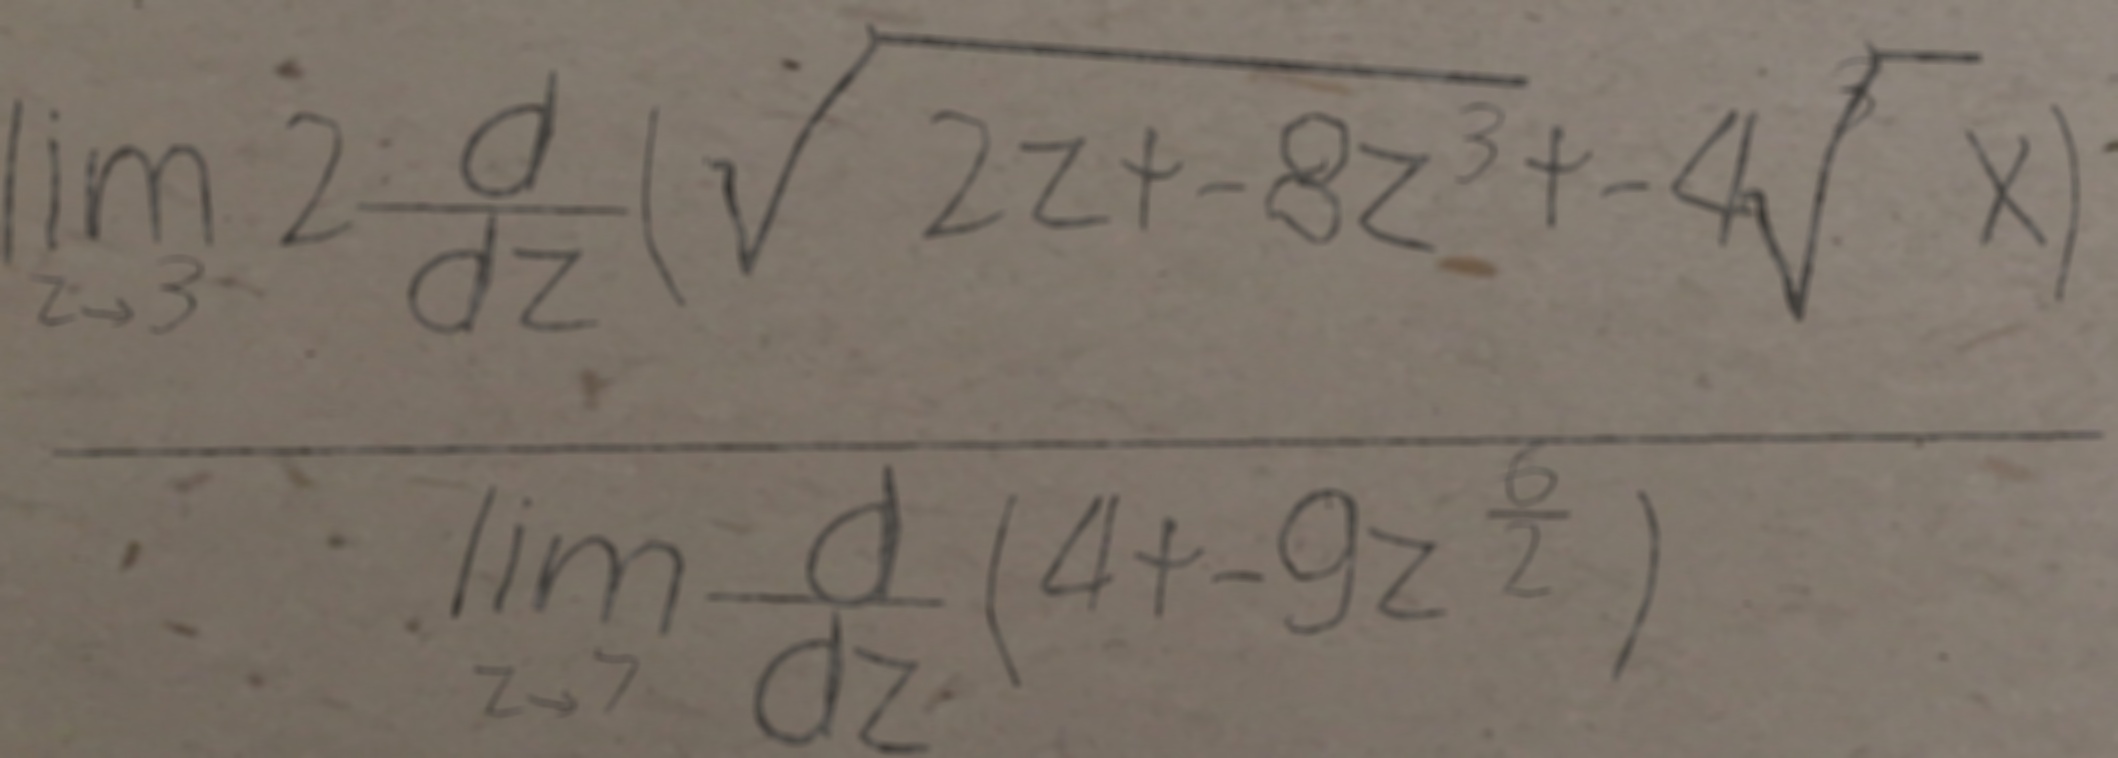 \frac{\lim_{z \to 3} 2 \frac{d}{dz} ( \sqrt{2z + -8z^3} + -4 \sqrt[3]{x} )}{\lim_{z \to 7} \frac{d}{dz} ( 4 + -9z^{\frac{6}{2}} )}